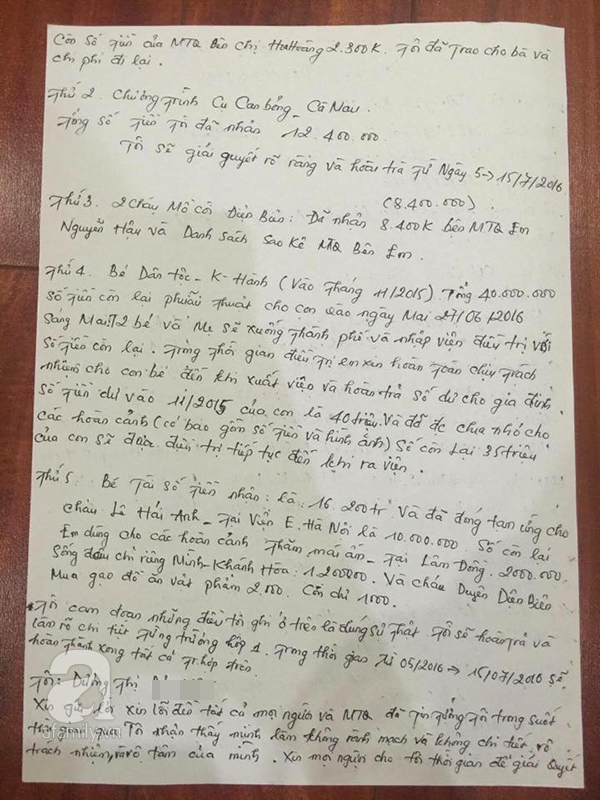 Còn số tiền của MTQ Bên chị Hoàng 2.300K. Tôi đã trao cho bà và
chi phí đi lại.
Thứ 2. Chương Trình Cụ Can bống - Cà Mau.
Tổng số tiền Tôi đã nhận 12.400.000
Tôi sẽ giải quyết rõ ràng và hoàn trả Từ Ngày 5->15/7/2016
(8.400.000)
Thứ 3. 2 cháu Mồ côi Điện Bàn: Đã nhận 8.400K bên MTQ Em
Nguyễn Hậu và Danh Sách Sao Kê MTQ Bên Em.
Thứ 4. Bé Dân tộc - K-Hành (Vào Tháng 11/2015) Tổng 40.000.000
số tiền còn lại phẫu thuật cho con vào ngày Mai 27/06/2016
Sáng Mai 2 bé và Mẹ sẽ xuống Thành phố và nhập viện điều trị với
số tiền còn lại. Trong Thời gian điều trị em xin hoàn toàn chịu Trách
nhiệm cho con bé đến khi xuất viện và hoàn trả số dư cho gia đình.
Số tiền dư vào 11/2015 của con là 40 triệu. Và đã đc chia nhỏ cho
các hoàn cảnh (có bao gồm số tiền và hình ảnh) Số còn Lại 35 triệu
của con sẽ được điều trị tiếp tục đến khi ra viện.
Thứ 5. Bé Tài số tiền nhận: là: 16.200tr. Và đã đóng tạm ứng cho
cháu Lê Hải Anh - Tại Viện E. Hà Nội là 10.000.000 Số còn lại
Em dùng cho các hoàn cảnh Thăm mái ấm - Tại Lâm Đồng. 2000.000.
Khánh Hòa: 1.200000. Và cháu Duyên Điện Biên
Mua gạo đồ ăn vật phẩm 2.000. Còn dư 1000.
Tôi cam đoan những điều tôi ghi ở trên là đúng sự Thật. Tôi sẽ hoàn trả và
làm rõ chi tiết từng trường hợp 1. Trong thời gian từ 05/2016 -> 15/07/2016 sẽ
hoàn Thành xong tất cả Tr.hợp trên
Tôi: Dương Thị
Xin gửi lời xin lỗi đến tất cả mọi người và MTQ đã tin tưởng tôi trong suốt
thời gian qua. Tôi nhận thấy mình làm không rành mạch và không chi tiết, rõ
trách nhiệm, tâm của mình. Xin mọi người cho tôi thời gian để giải Quyết
a
afamily.vn